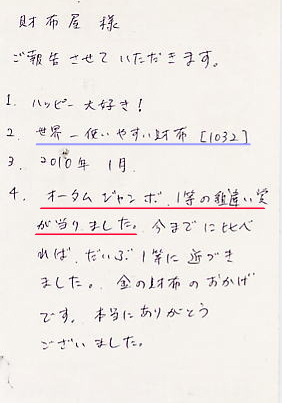 財布屋 様
ご報告させていただきます。
1. ハッピー大好き!
2. 世界一使いやすい財布 [1032]
3. 2010年 1月
4. オータムジャンボ、1等の組違い賞
が当りました。今までに比べ
れば、だいぶ1等に近づき
ました。金の財布のおかげ
です。本当にありがとう
ございました。